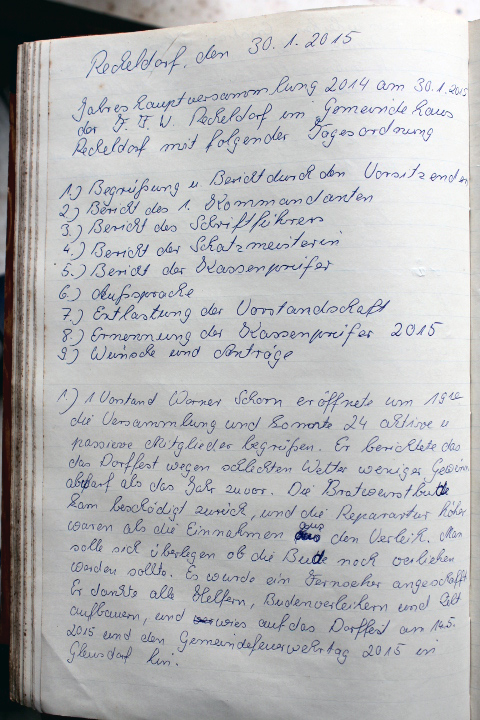 Reckeldorf, den 30.1.2015
Jahreshauptversammlung 2014 am 30.1.2015
der F.F.W. Reckeldorf im Gemeindehaus
Reckeldorf mit folgender Tagesordnung
1.) Begrüßung u. Bericht durch den Vorsitzenden
2.) Bericht des 1. Kommandanten
3.) Bericht des Schriftführers
4.) Bericht der Schatzmeisterin
5.) Bericht der Kassenprüfer
6.) Aussprache
7.) Entlastung der Vorstandschaft
8.) Ernennung der Kassenprüfer 2015
9.) Wünsche und Anträge
1.) 1 Vorstand Werner Schorn eröffnete um
die Versammlung und konnte 24 aktive u
passive Mitglieder begrüßen. Er berichtete das
das Dorffest wegen schlechten Wetter weniger Gewinn
abwarf als das Jahr zuvor. Die Bratwurstbude
kam beschädigt zurück, und die Reparartur höher
waren als die Einnahmen aus den Verleih. Man
solle sich überlegen ob die Bude noch verliehen
werden sollte. Es wurde ein Fernseher angeschafft
Er dankte alle Helfern, Budenverleihern und Zelt
aufbauern, und wies auf das Dorffest am 14.5.
2015 und den Gemeindefeuerwehrtag 2015 in
Gleusdorf hin.